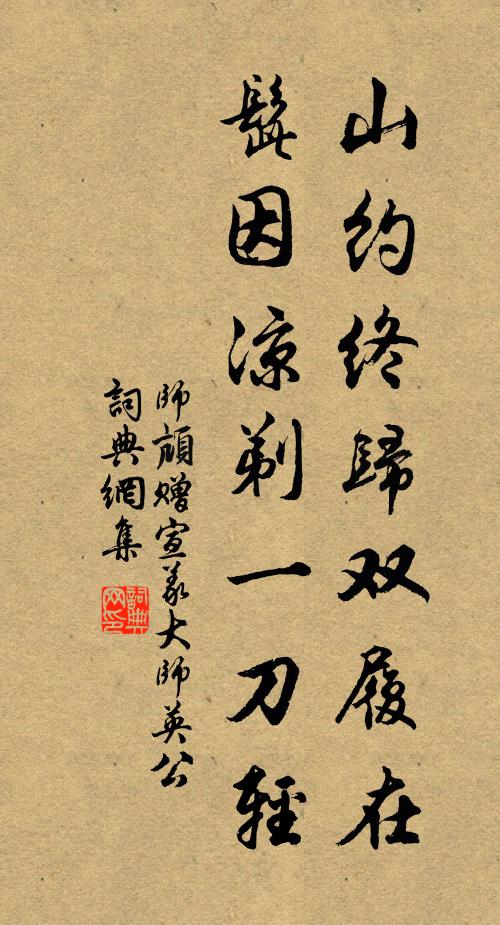 山约终歸双履在
髭因凉剃一刀輕
師頏贈宣義大師英公
詞典網集
詞典网印